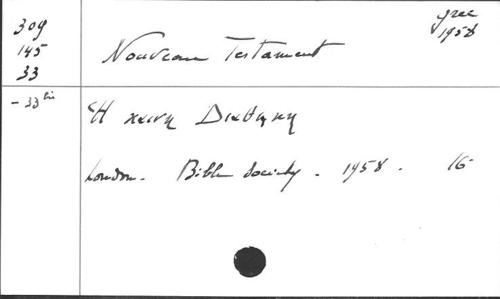 309
145
33
Nouveau Testament
grec
1958
- 33 bis
Ἡ καινη Διαθηκη
London. Bible Society. 1958. 16